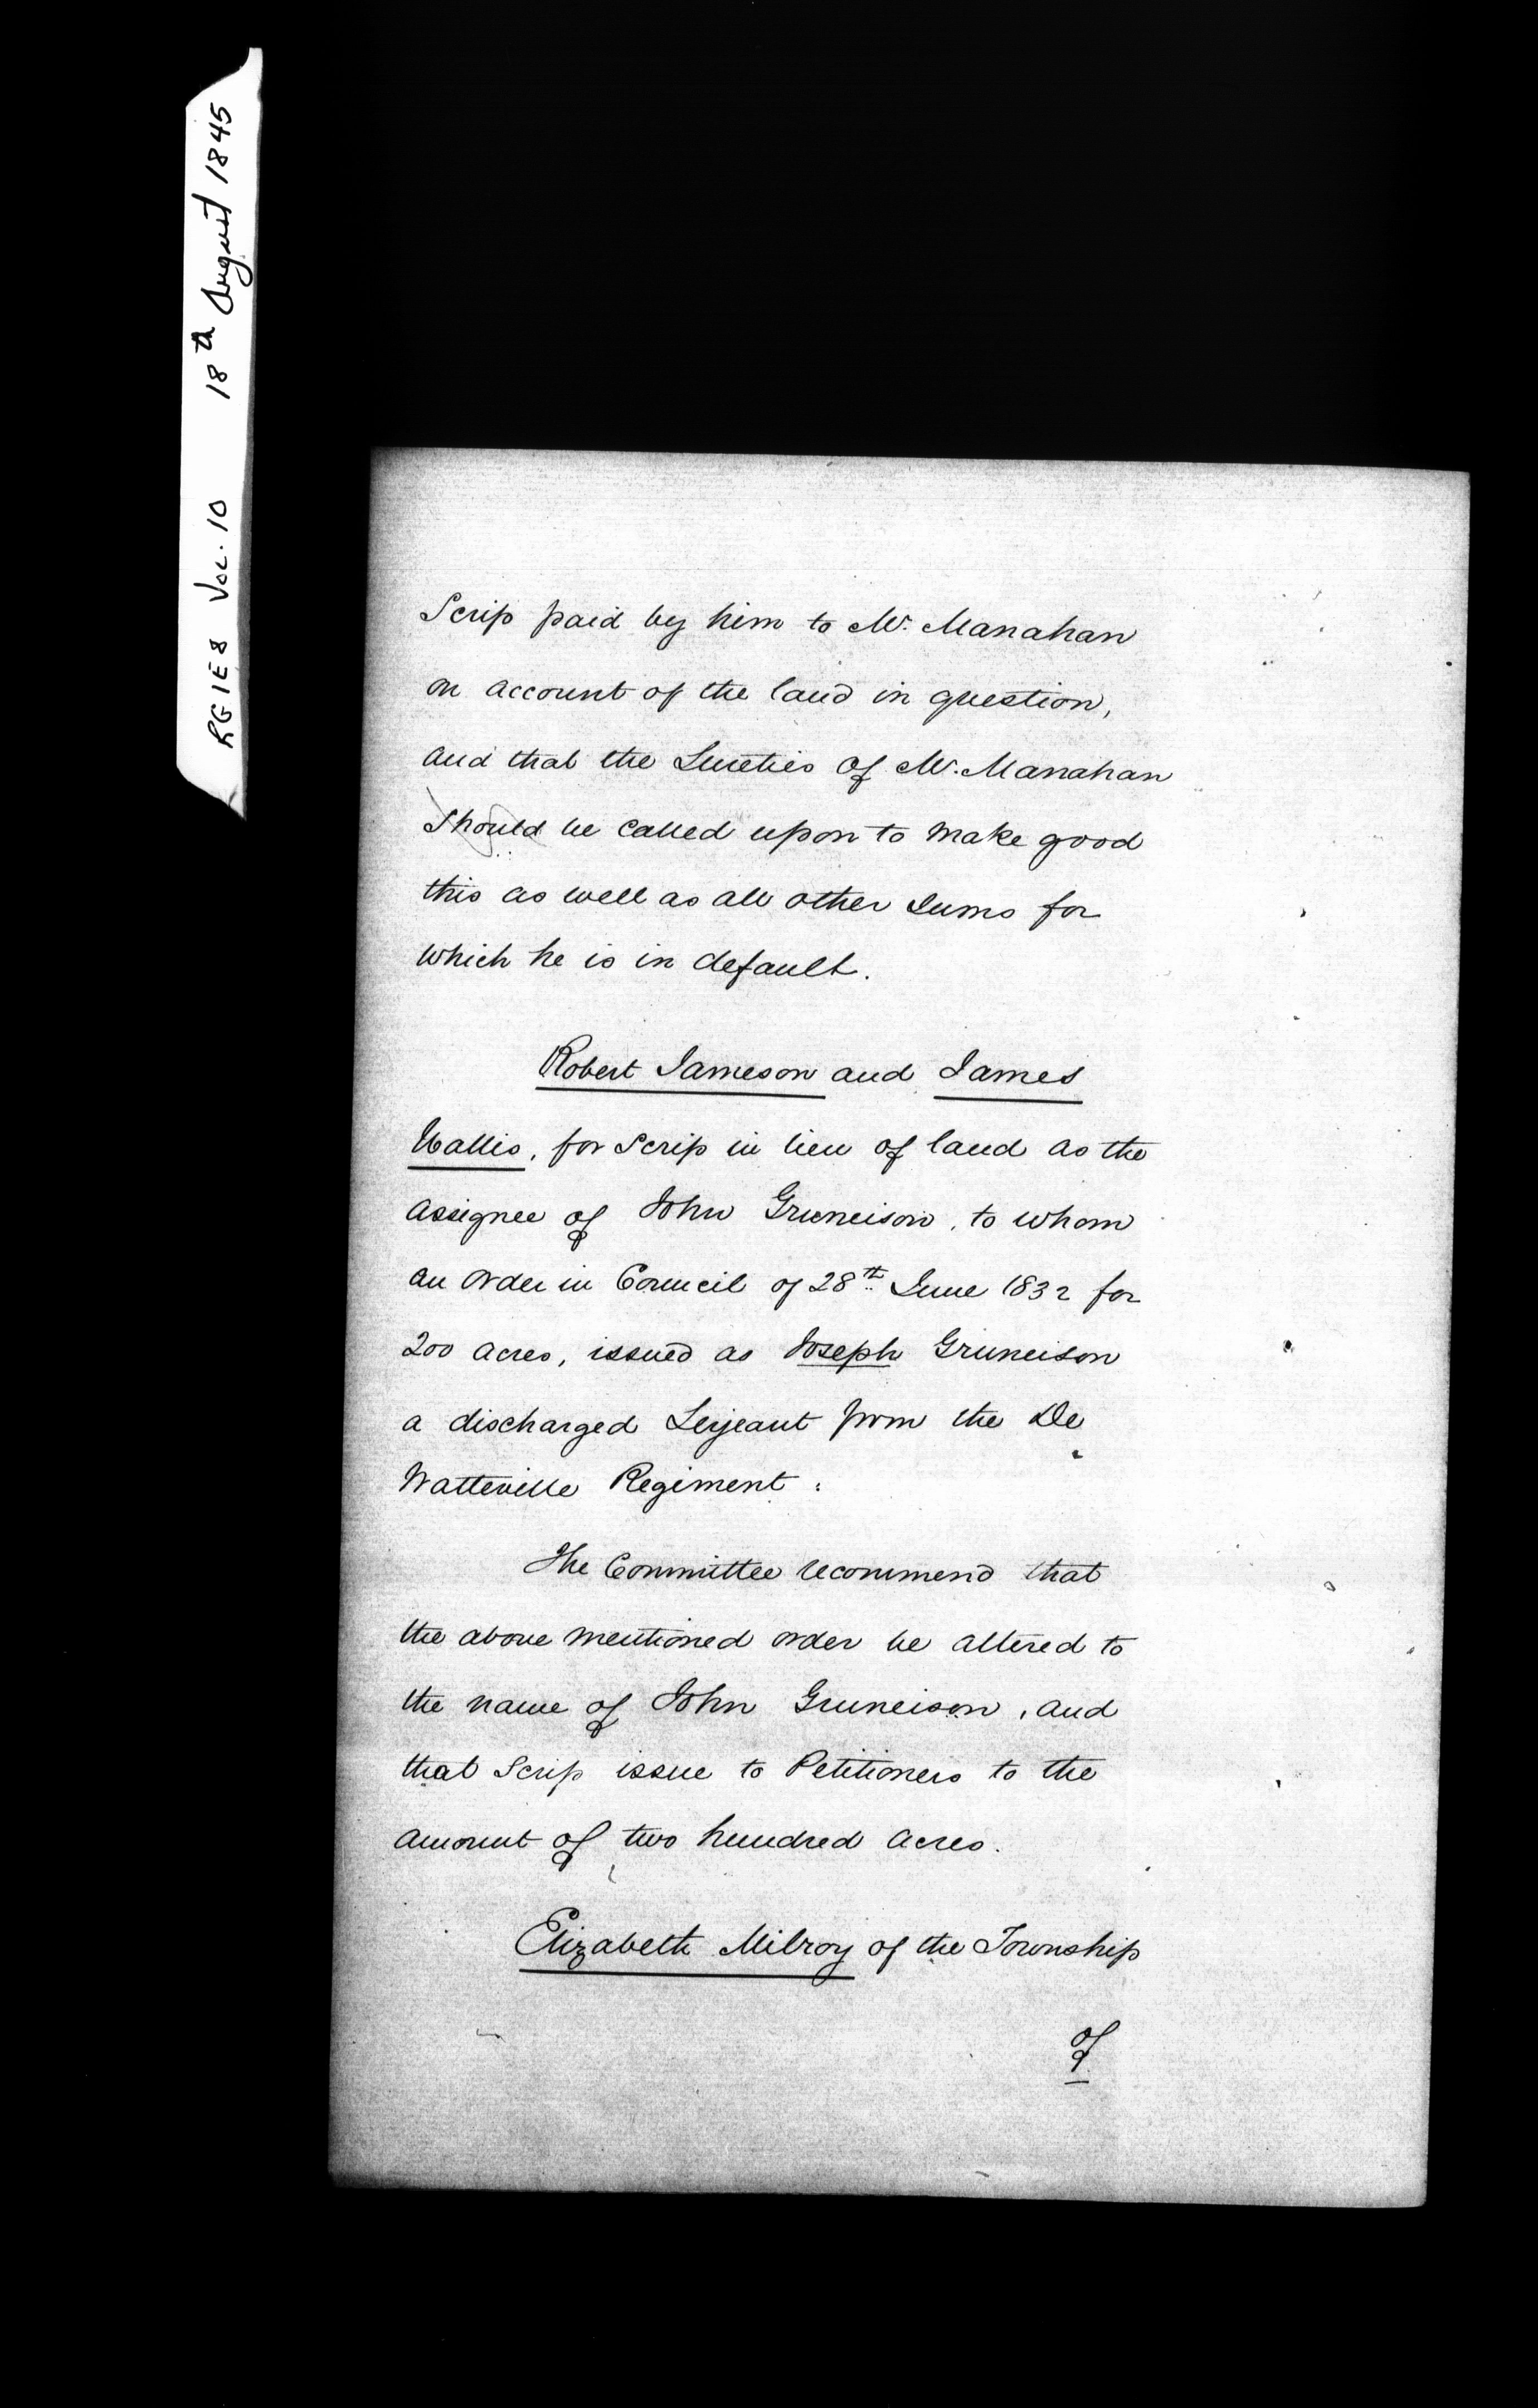 RG1E8 Vol. 10 18th August 1845
Scrip paid by him to Mr. Manahan
on account of the land in question,
and that the Sureties of Mr. Manahan
should be called upon to make good
this as well as all other sums for
which he is in default.
Robert Jameson and James
Wallis, for Scrip in lieu of land as the
assignee of John Gruneison, to whom
an order in Council of 28th June 1832 for
200 acres, issued as Joseph Gruneison
a discharged Serjeant from the De
Watteville Regiment:
The Committee recommend that
the above mentioned order be altered to
the name of John Gruneison, and
that Scrip issue to Petitioners to the
amount of two hundred acres.
Elizabeth Milroy of the Township
of